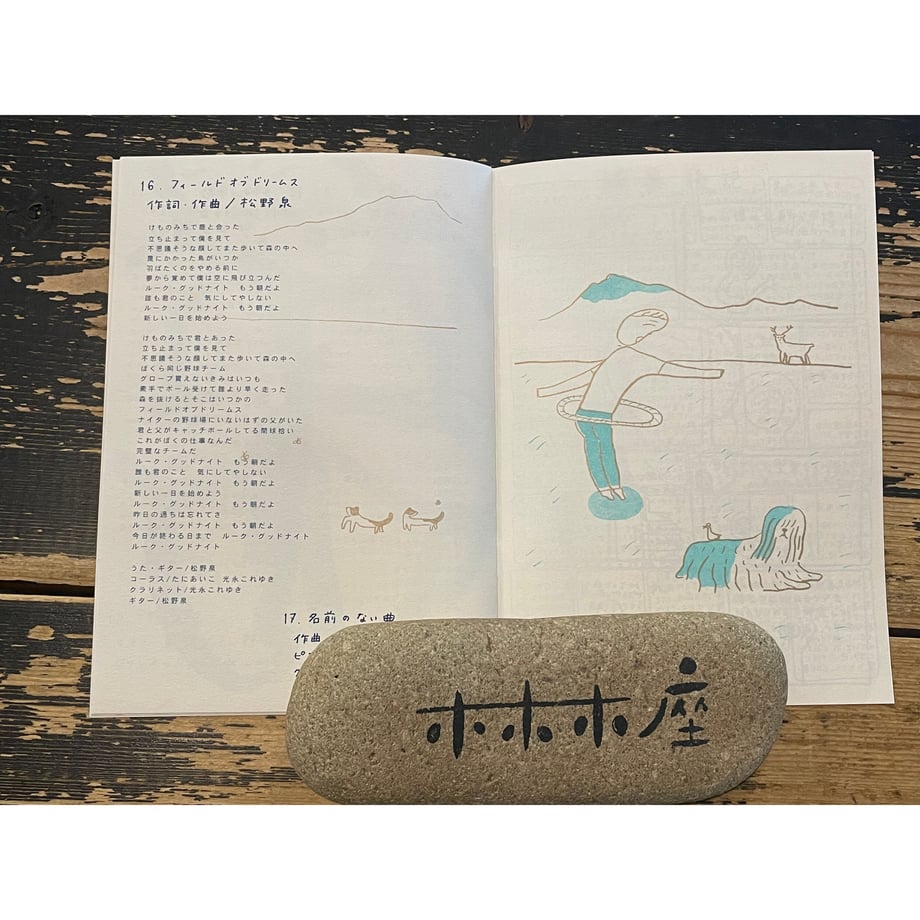 16. フィールドオブドリームス
作詞・作曲/松野泉
けものみちで鹿と会った
立ち止まって僕を見て
不思議そうな顔してまた歩いて森の中へ
罠にかかった鳥がいつか
羽ばたくのをやめる前に
夢から覚めて僕は空に飛び立つんだ
ルーク・グッドナイト もう朝だよ
誰も君のこと 気にしてやしない
ルーク・グッドナイト もう朝だよ
新しい一日を始めよう
けものみちで君とあった
立ち止まって僕を見て
不思議そうな顔してまた歩いて森の中へ
ぼくら同じ野球チーム
グローブ買えないきみはいつも
素手でボール受けて誰より早く走った
森を抜けるとそこはいつかの
フィールドオブドリームス
ナイターの野球場にいないはずの父がいた
君と父がキャッチボールしてる間球拾い
これがぼくの仕事なんだ
完璧なチームだ
ルーク・グッドナイト もう朝だよ
誰も君のこと 気にしてやしない
ルーク・グッドナイト もう朝だよ
新しい一日を始めよう
ルーク・グッドナイト もう朝だよ
昨日の過ちは忘れてさ
ルーク・グッドナイト もう朝だよ
今日が終わる日まで ルーク・グッドナイト
ルーク・グッドナイト
うた・ギター/松野泉
コーラス/たにあいこ 光永これゆき
クラリネット/光永これゆき
ギター/松野泉
17. 名前のない曲
作曲
ホホホ座